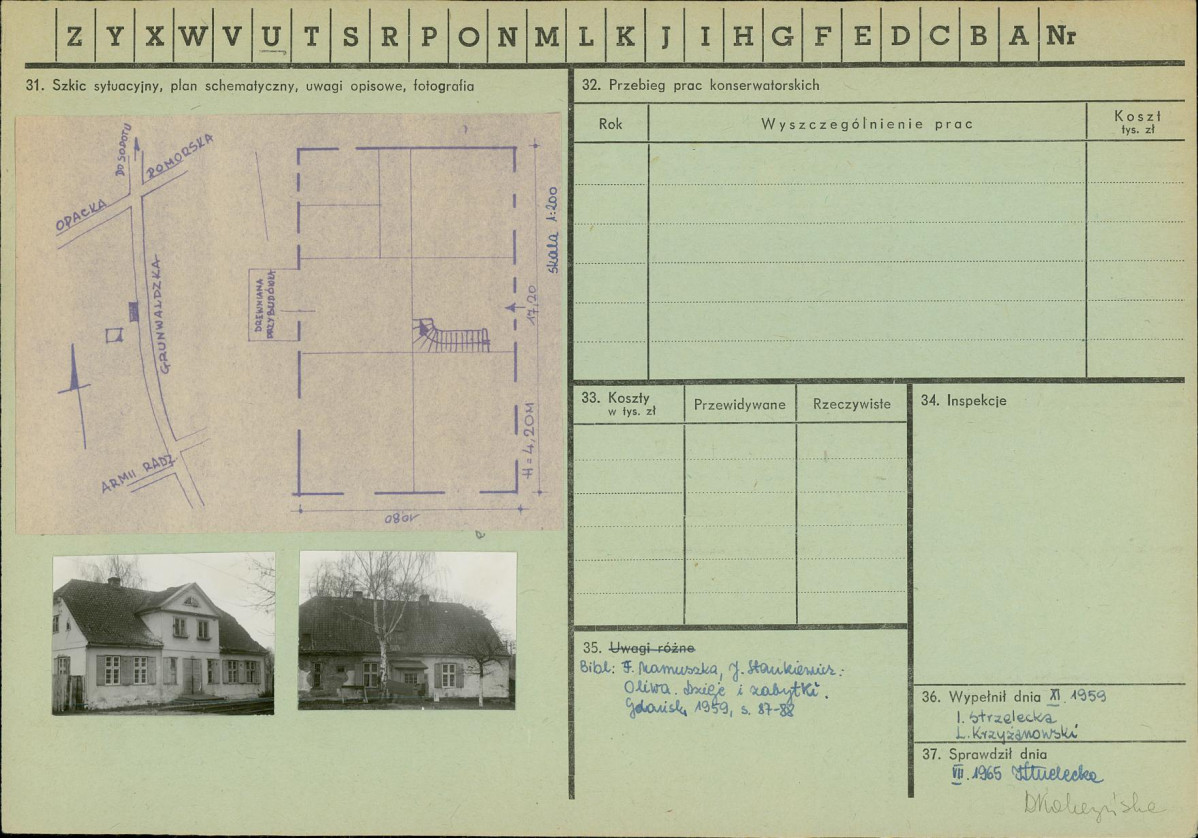 Z Y X W V U T S R P O N M L K J I H G F E D C B A Nr
31. Szkic sytuacyjny, plan schematyczny, uwagi opisowe, fotografia
DO SOPOTU
POMORSKA
OPACKA
GRUNWALDZKA
ARMII RADZ.
DREWNIANA
PRZYBUDÓWKA
skala 1:200
17,20
H = 4,20M
10,80
32. Przebieg prac konserwatorskich
Rok
Wyszczególnienie prac
Koszt
tys. zł
33. Koszty
w tys. zł
Przewidywane
Rzeczywiste
34. Inspekcje
35. Uwagi różne
Bibl: F. Mamuszka, J. Stankiewicz:
Oliwa. Dzieje i zabytki.
Gdańsk, 1959, s. 87-88
36. Wypełnił dnia XI. 1959
I. Strzelecka
L. Krzyżanowski
37. Sprawdził dnia
VII. 1965